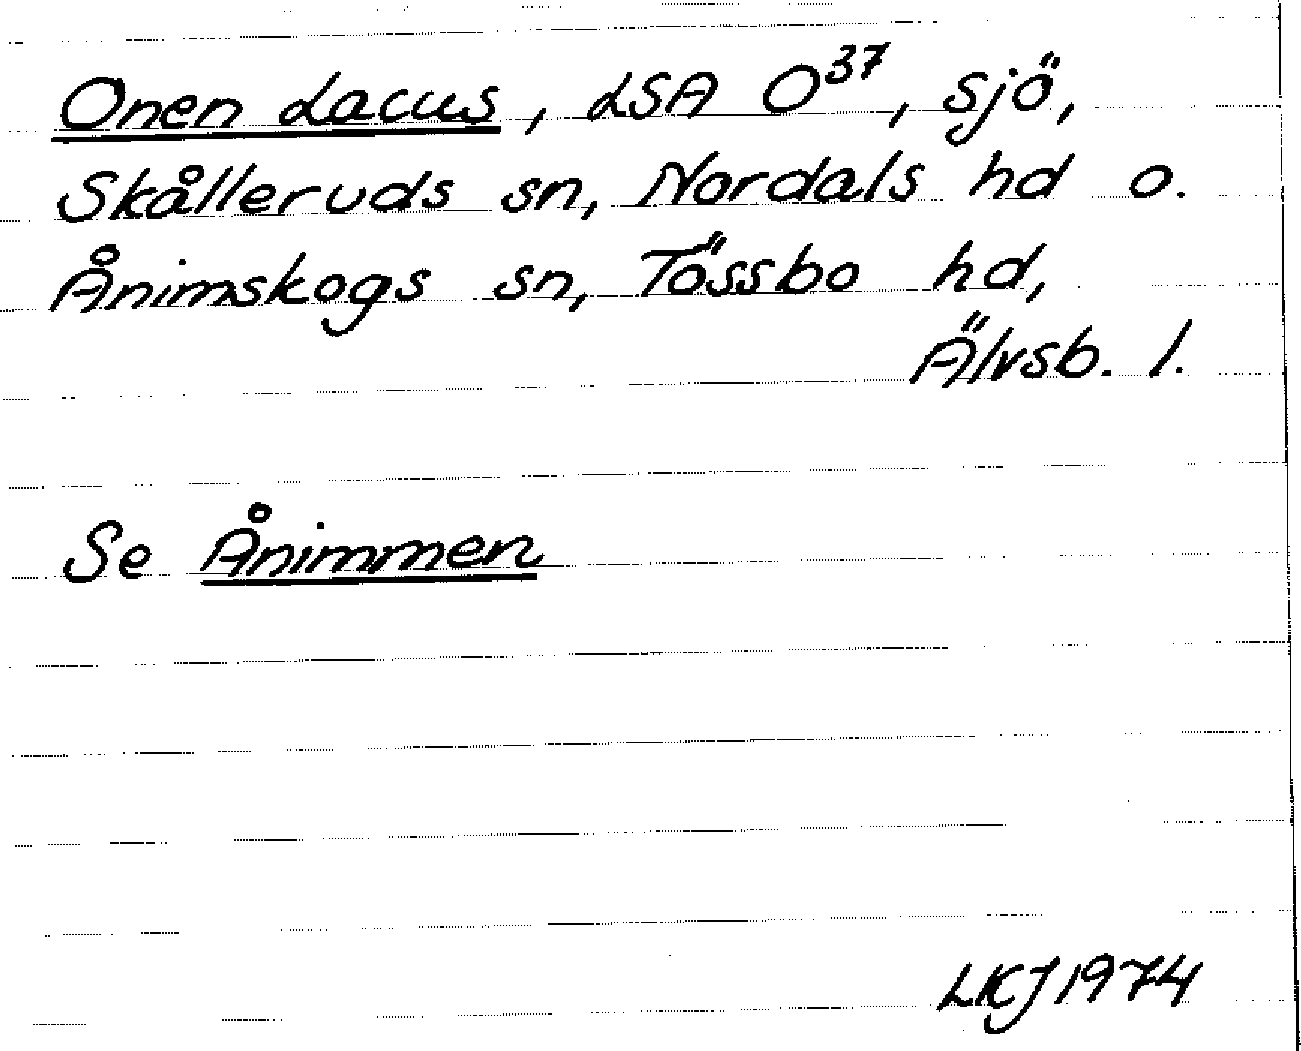 Onen Lacus, LSA O³⁷, sjö,
Skålleruds sn, Nordals hd o.
Ånimskogs sn, Tössbo hd,
Älvsb. l.
Se Ånimmen
LKJ 1974